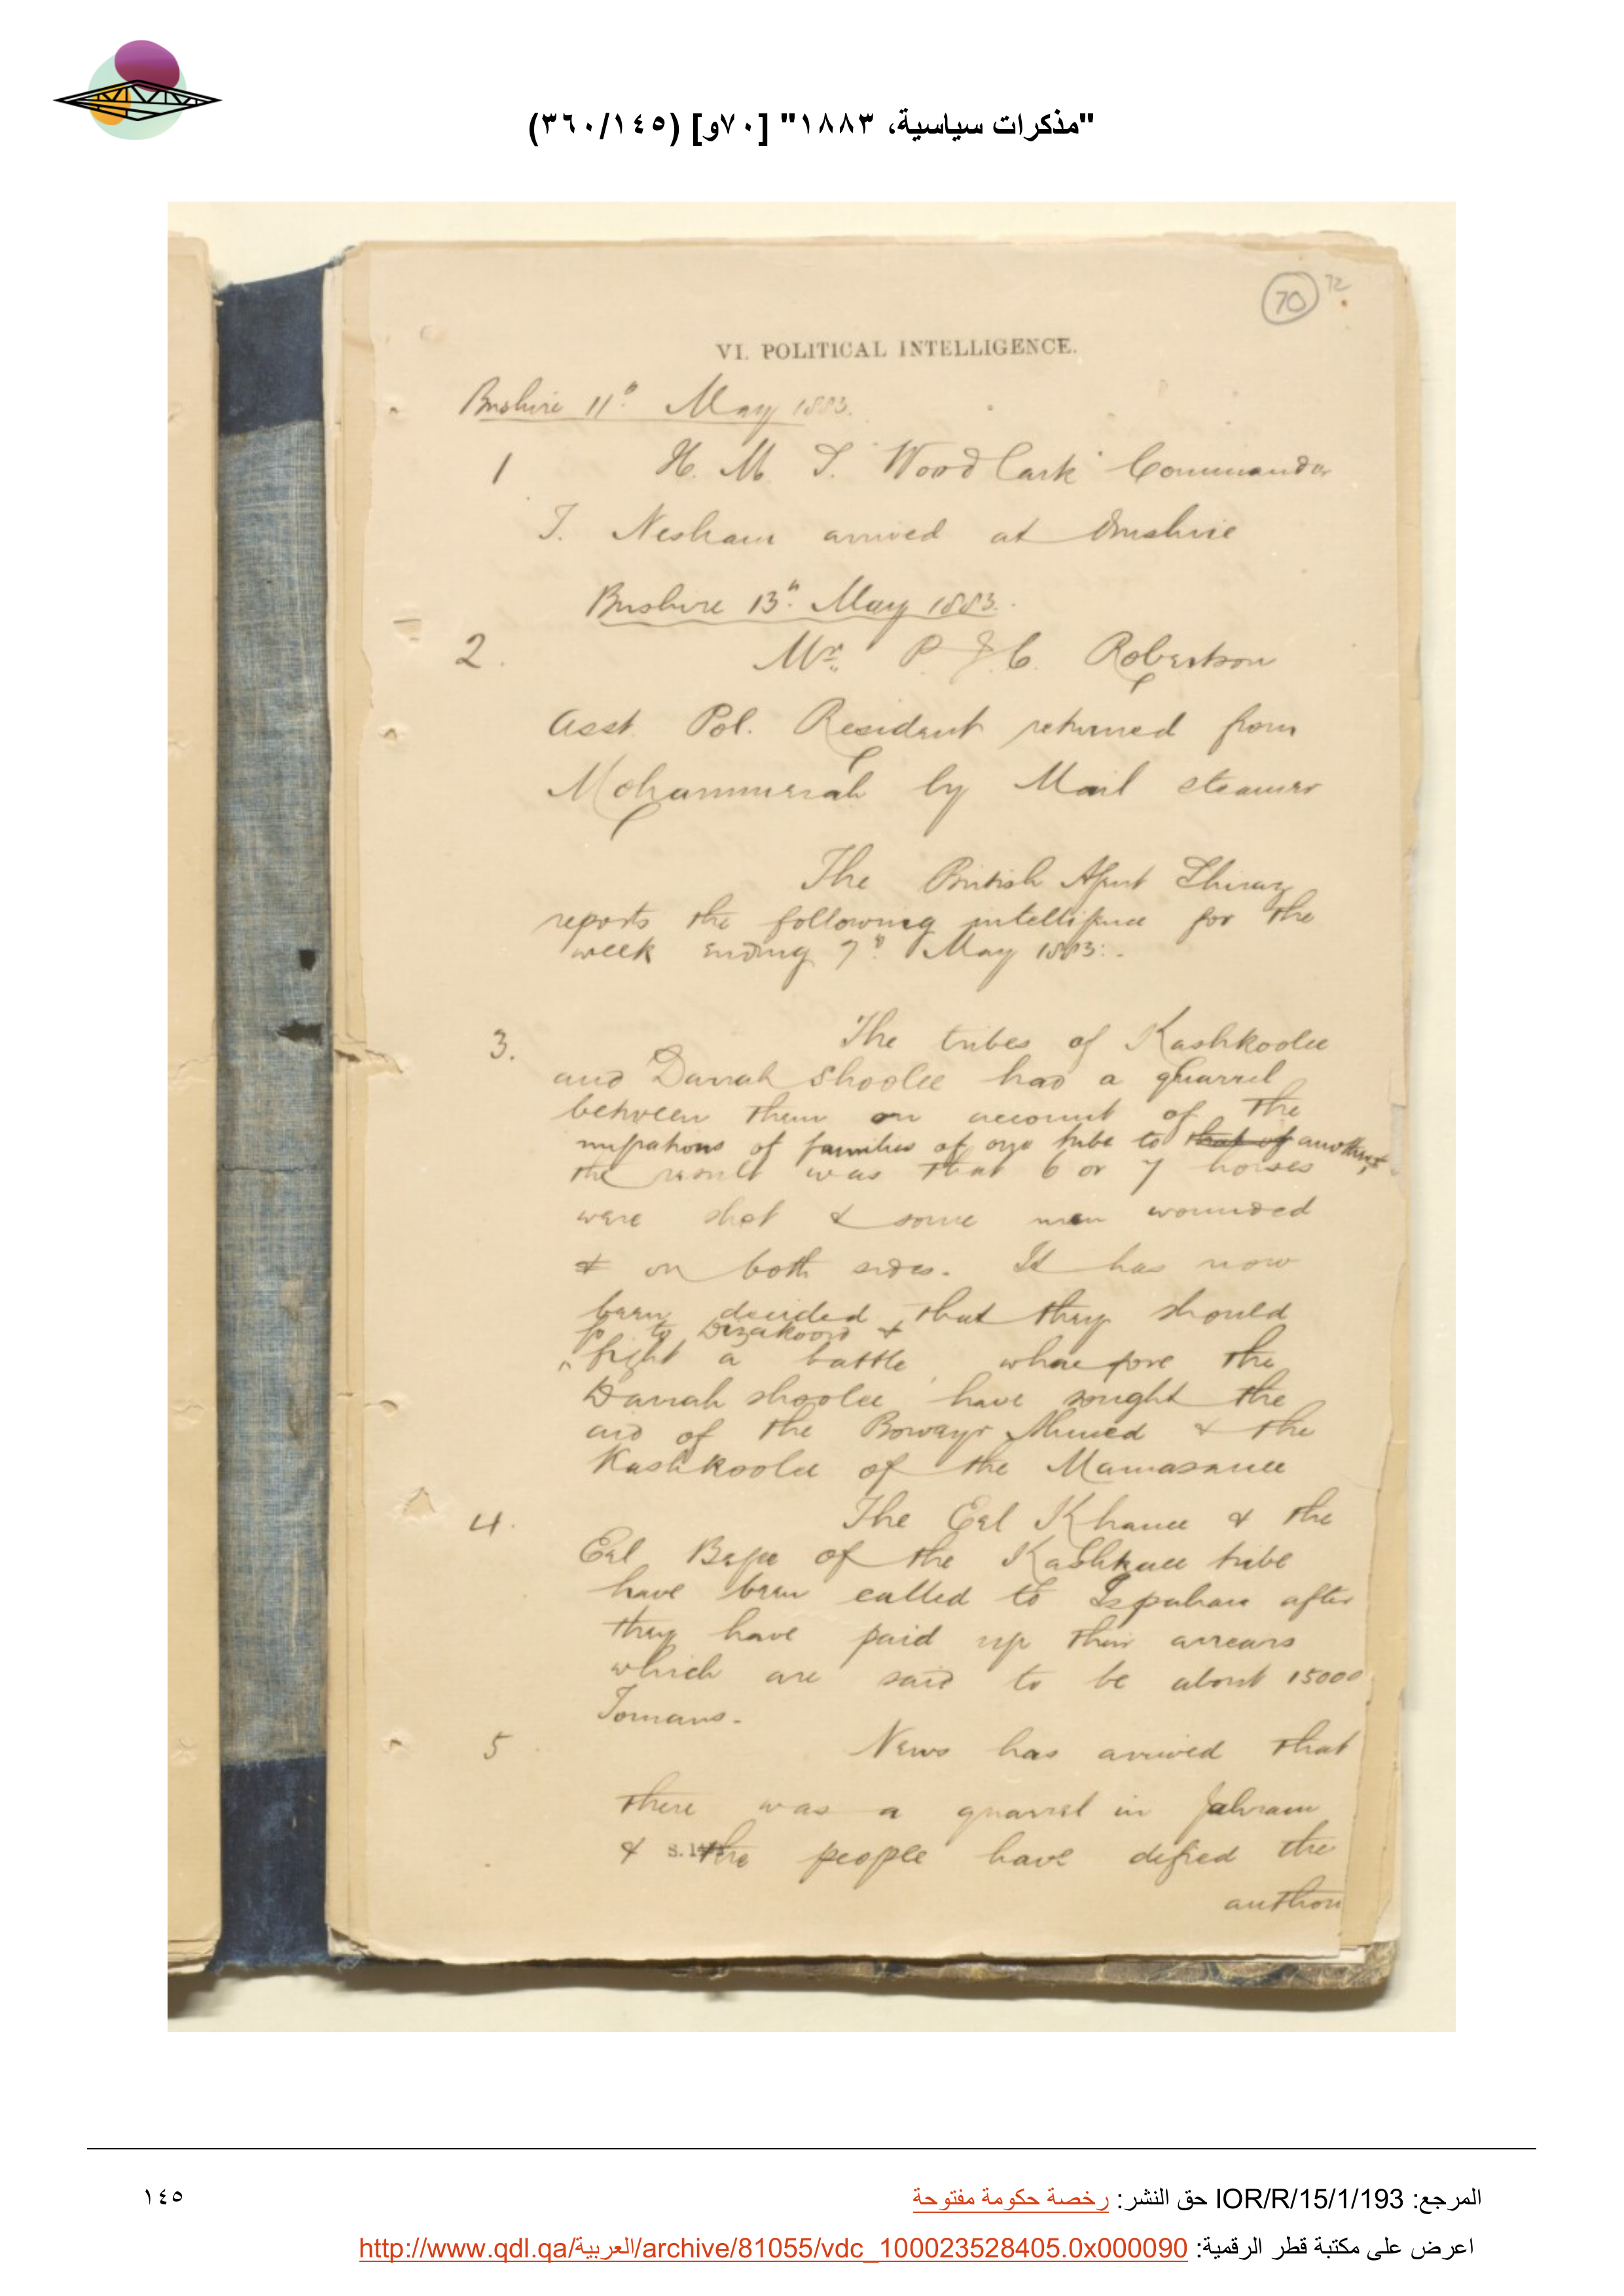 "مذكرات سياسية، ١٨٨٣" [٧٠و] (٣٦٠/١٤٥)
70 72
VI. POLITICAL INTELLIGENCE.
Bushire 11th May 1883.
1 H. M. S. "Woodlark" Commander
T. Nesham arrived at Bushire
Bushire 13th May 1883.
2. Mr. P. J. C. Robertson
Asst. Pol. Resident returned from
Mohammerah by Mail steamer
The British Agent Shiraz
reports the following intelligence for the
week ending 7th May 1883:-
3. The tribes of Kashkoolee
and Darrah Shoolee had a quarrel
between them on account of the
migrations of families of one tribe to that of another,
the result was that 6 or 7 horses
were shot & some men wounded
& on both sides. It has now
been decided that they should
go to Dizakoord &
fight a battle, wherefore the
Darrah shoolee have sought the
aid of the Bowayr Ahmed & the
Kashkoolee of the Mamasanee
4. The Eel Khanee & the
Eel Begee of the Kashkaee tribe
have been called to Ispahan after
they have paid up their arrears
which are said to be about 15000
Tomans.-
5 News has arrived that
there was a quarrel in Jahram
& the people have defied the
author
المرجع: IOR/R/15/1/193 حق النشر: رخصة حكومة مفتوحة
١٤٥
اعرض على مكتبة قطر الرقمية: http://www.qdl.qa/العربية/archive/81055/vdc_100023528405.0x000090